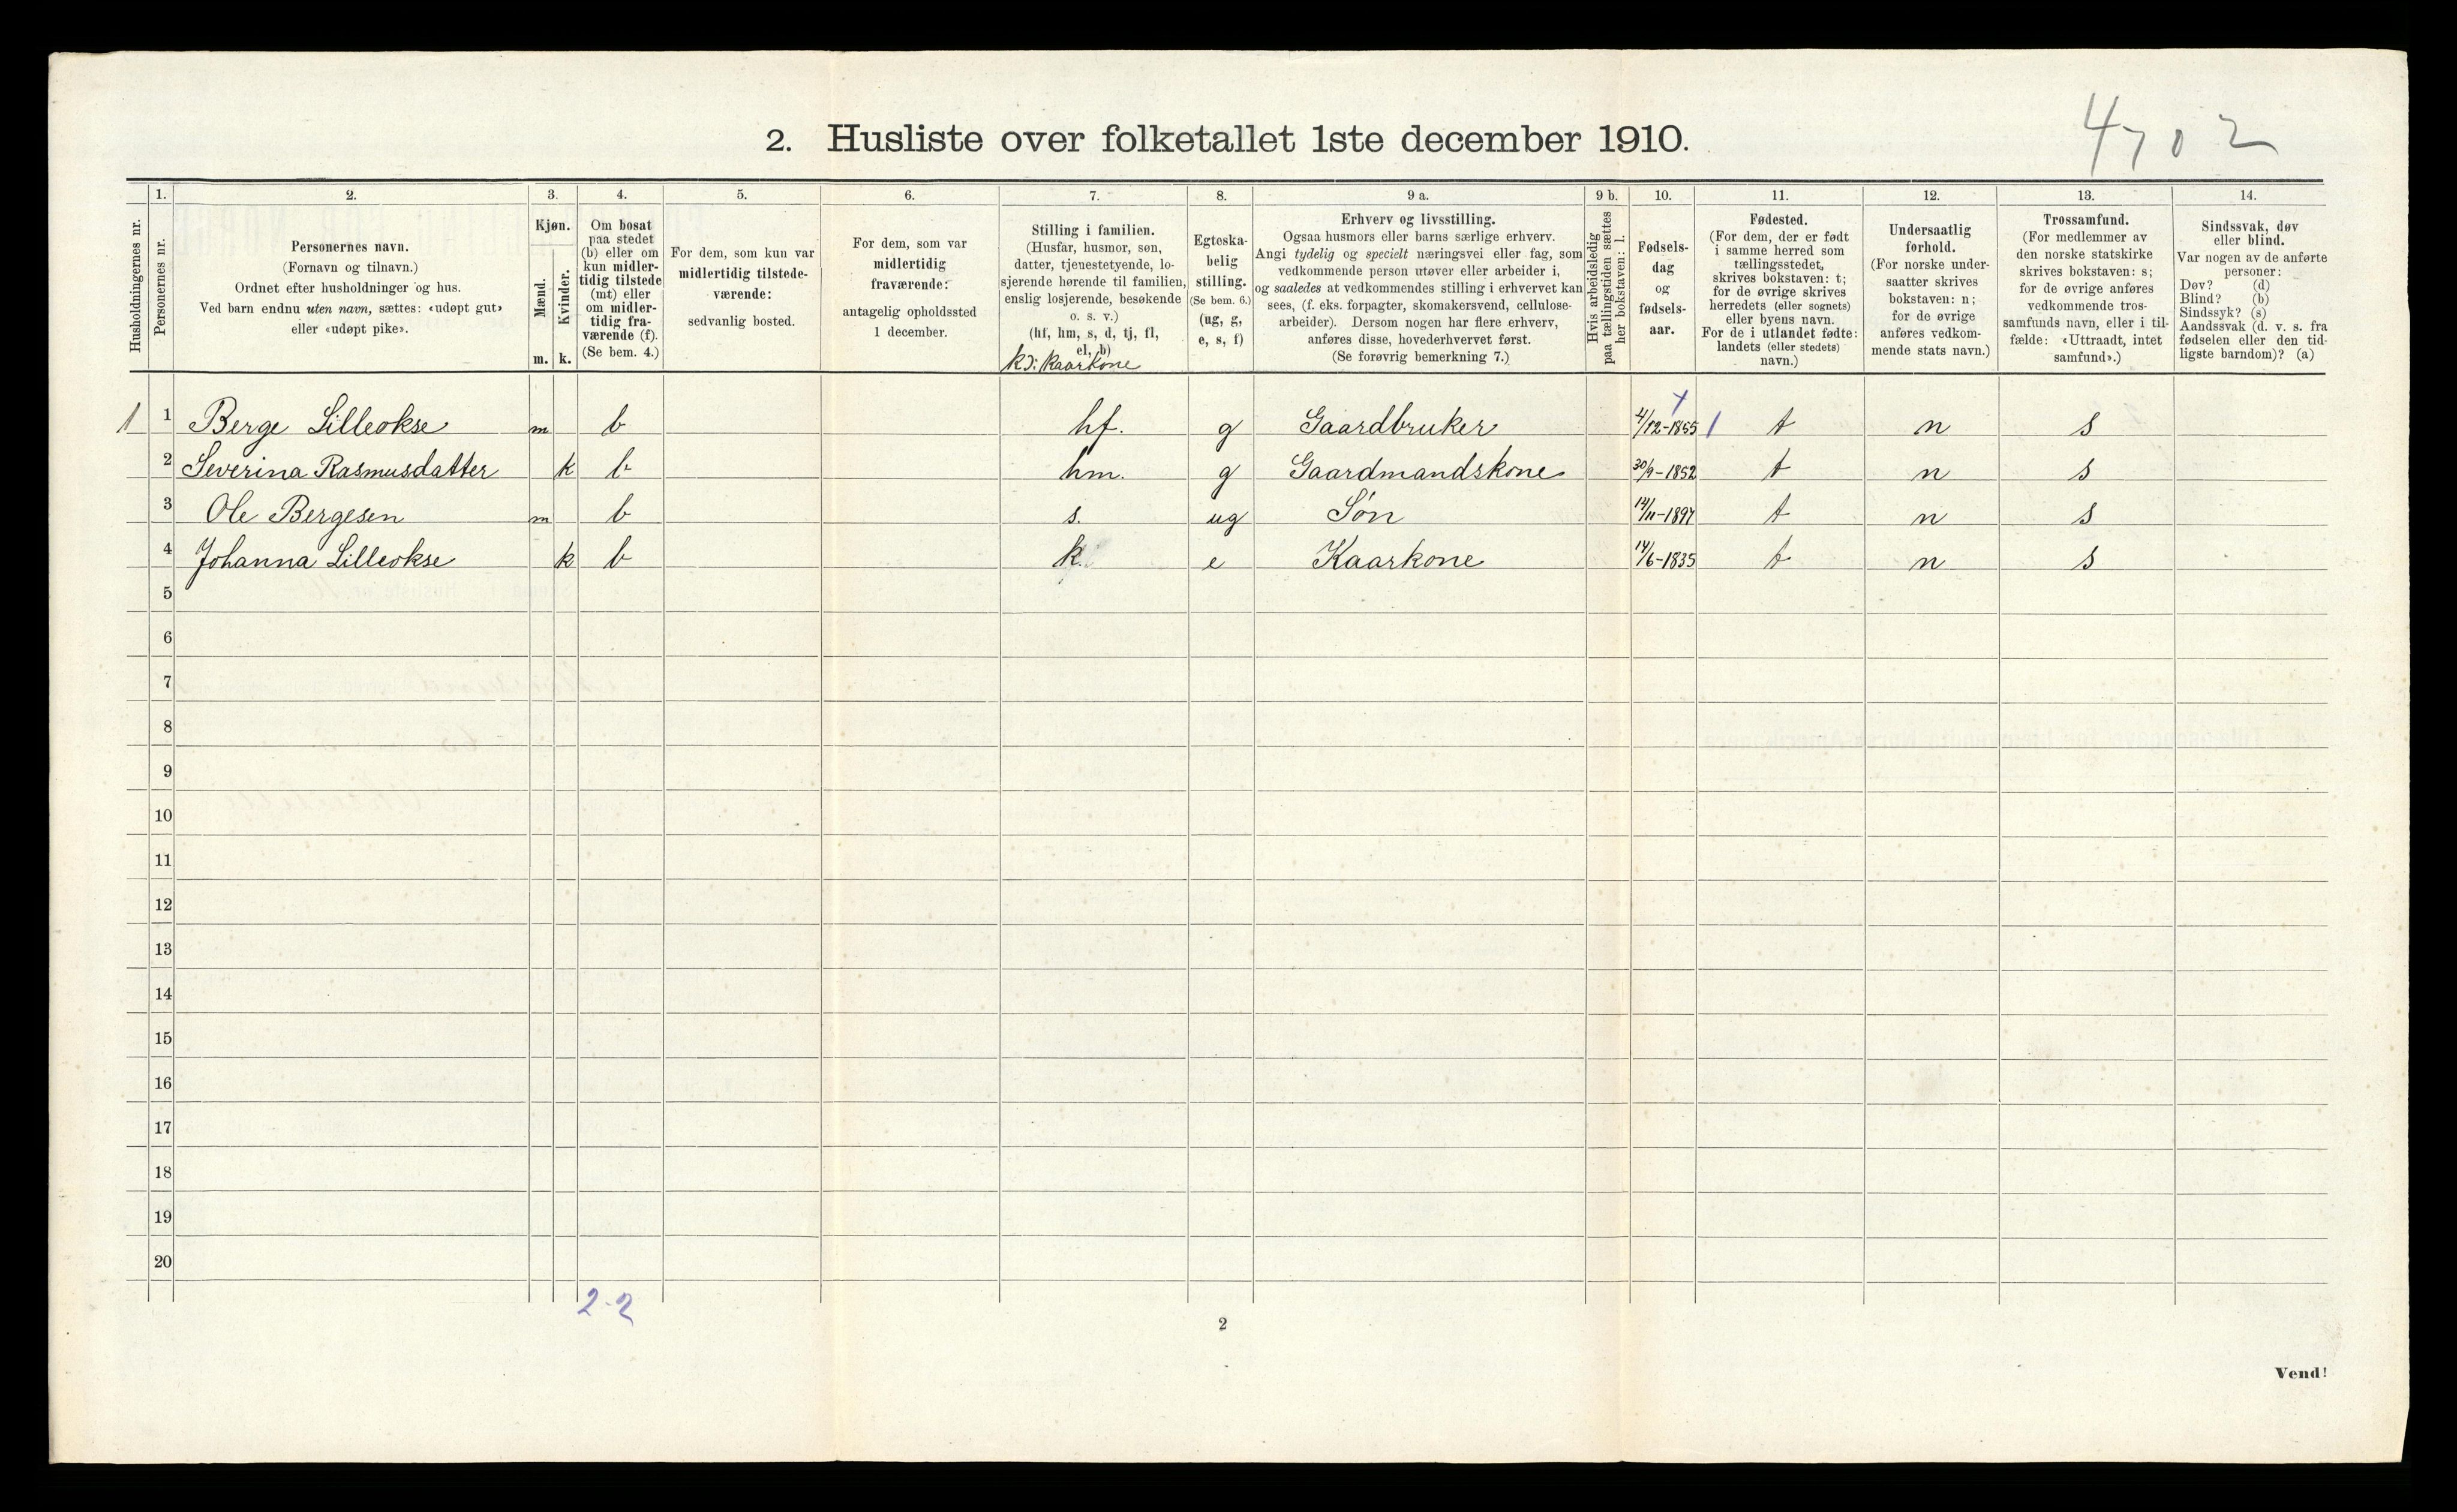 4702
2. Husliste over folketallet 1ste december 1910.
Husholdningernes nr.
1.
Personernes nr.
2.
Personernes navn.
(Fornavn og tilnavn.)
Ordnet efter husholdninger og hus.
Ved barn endnu uten navn, sættes: «udøpt gut»
eller «udøpt pike».
3.
Kjøn.
Mænd.
m.
Kvinder.
k.
4.
Om bosat
paa stedet
(b) eller om
kun midler-
tidig tilstede
(mt) eller
om midler-
tidig fra-
værende (f).
(Se bem. 4.)
5.
For dem, som kun var
midlertidig tilstede-
værende:
sedvanlig bosted.
6.
For dem, som var
midlertidig
fraværende:
antagelig opholdssted
1 december.
7.
Stilling i familien.
(Husfar, husmor, søn,
datter, tjenestetyende, lo-
sjerende hørende til familien,
enslig losjerende, besøkende
o. s. v.)
(hf, hm, s, d, tj, fl,
el, b)
kɔ: kaarkone
8.
Egteska-
belig
stilling.
(Se bem. 6.)
(ug, g,
e, s, f)
9 a.
Erhverv og livsstilling.
Ogsaa husmors eller barns særlige erhverv.
Angi tydelig og specielt næringsvei eller fag, som
vedkommende person utøver eller arbeider i,
og saaledes at vedkommendes stilling i erhvervet kan
sees, (f. eks. forpagter, skomakersvend, cellulose-
arbeider). Dersom nogen har flere erhverv,
anføres disse, hovederhvervet først.
(Se forøvrig bemerkning 7.)
9 b.
Hvis arbeidsledig
paa tællingstiden sættes
her bokstaven: l.
10.
Fødsels-
dag
og
fødsels-
aar.
11.
Fødested.
(For dem, der er født
i samme herred som
tællingsstedet,
skrives bokstaven: t;
for de øvrige skrives
herredets (eller sognets)
eller byens navn.
For de i utlandet fødte:
landets (eller stedets)
navn.)
12.
Undersaatlig
forhold.
(For norske under-
saatter skrives
bokstaven: n;
for de øvrige
anføres vedkom-
mende stats navn.)
13.
Trossamfund.
(For medlemmer av
den norske statskirke
skrives bokstaven: s;
for de øvrige anføres
vedkommende tros-
samfunds navn, eller i til-
fælde: «Uttraadt, intet
samfund».)
14.
Sindssvak, døv
eller blind.
Var nogen av de anførte
personer:
Døv? (d)
Blind? (b)
Sindssyk? (s)
Aandssvak (d. v. s. fra
fødselen eller den tid-
ligste barndom)? (a)
1 1 Berge Lilleokse m b hf. g Gaardbruker 4/12-1855 t n s
2 Severina Rasmusdatter k b hm. g Gaardmandskone 30/9-1852 t n s
3 Ole Bergesen m b s. ug Søn 14/11-1897 t n s
4 Johanna Lilleokse k b k. e Kaarkone 14/6-1835 t n s
5
6
7
8
9
10
11
12
13
14
15
16
17
18
19
20
2-2
2
Vend!